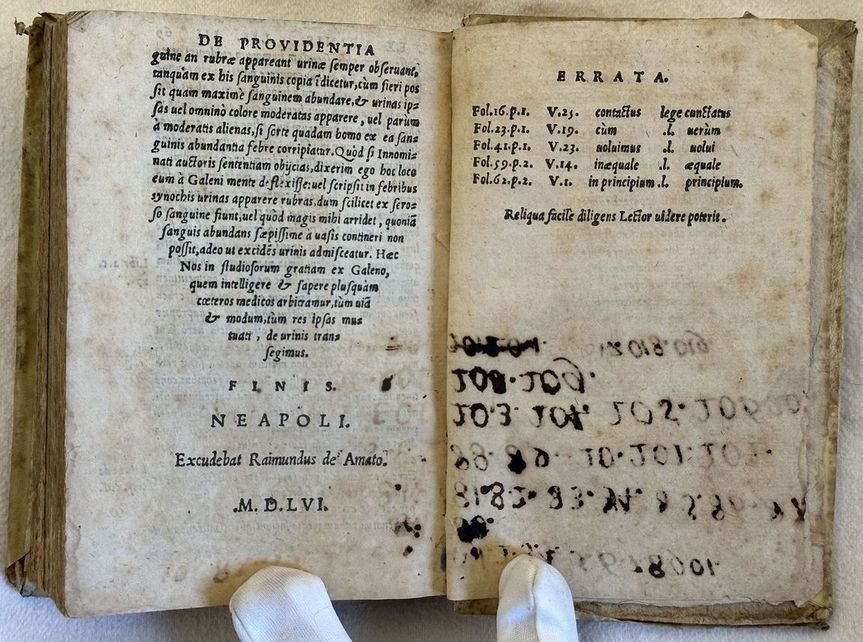 DE PROVIDENTIA
guine an rubræ appareant urinæ semper obseruant,
tanquàm ex his sanguinis copia īdicetur, cùm fieri pos
sit quam maximè sanguinem abundare, & urinas ip=
sas uel omninò colore moderatas apparere, uel parum
à moderatis alienas, si forte quadam homo ex ea san=
guinis abundantia febre corripiatur. Quòd si Innomi=
nati auctoris sententiam obijcias, dixerim ego hoc loco
eum à Galeni mente deflexisse: uel scripsit in febribus
synochis urinas apparere rubras, dum scilicet ex fero=
so sanguine fiunt, uel quòd magis mihi arridet, quoniā
sanguis abundans sæpissime à uasis contineri non
possit, adeo ut excidēs urinis admisceatur. Hæc
Nos in studiosorum gratiam ex Galeno,
quem intelligere & sapere plusquàm
cæteros medicos arbitramur, tùm uiā
& modum, tùm res ipsas mu=
tuati, de urinis tran=
segimus.
FINIS.
NEAPOLI.
Excudebat Raimundus de Amato.
.M. D. LVI.
ERRATA.
Fol.16.p.1. V.25. contactus lege cunctatus
Fol.23.p.1. V.19. cùm .l. uerùm
Fol.41.p.1. V.23. uoluimus .l. uolui
Fol.59.p.2. V.14. inæquale .l. æquale
Fol.62.p.2. V.1. in principium .l. principium.
Reliqua facile diligens Lector uidere poteris.
108. 109.
103 104. 105. 106
81.82. 83. 84. 85. 86.